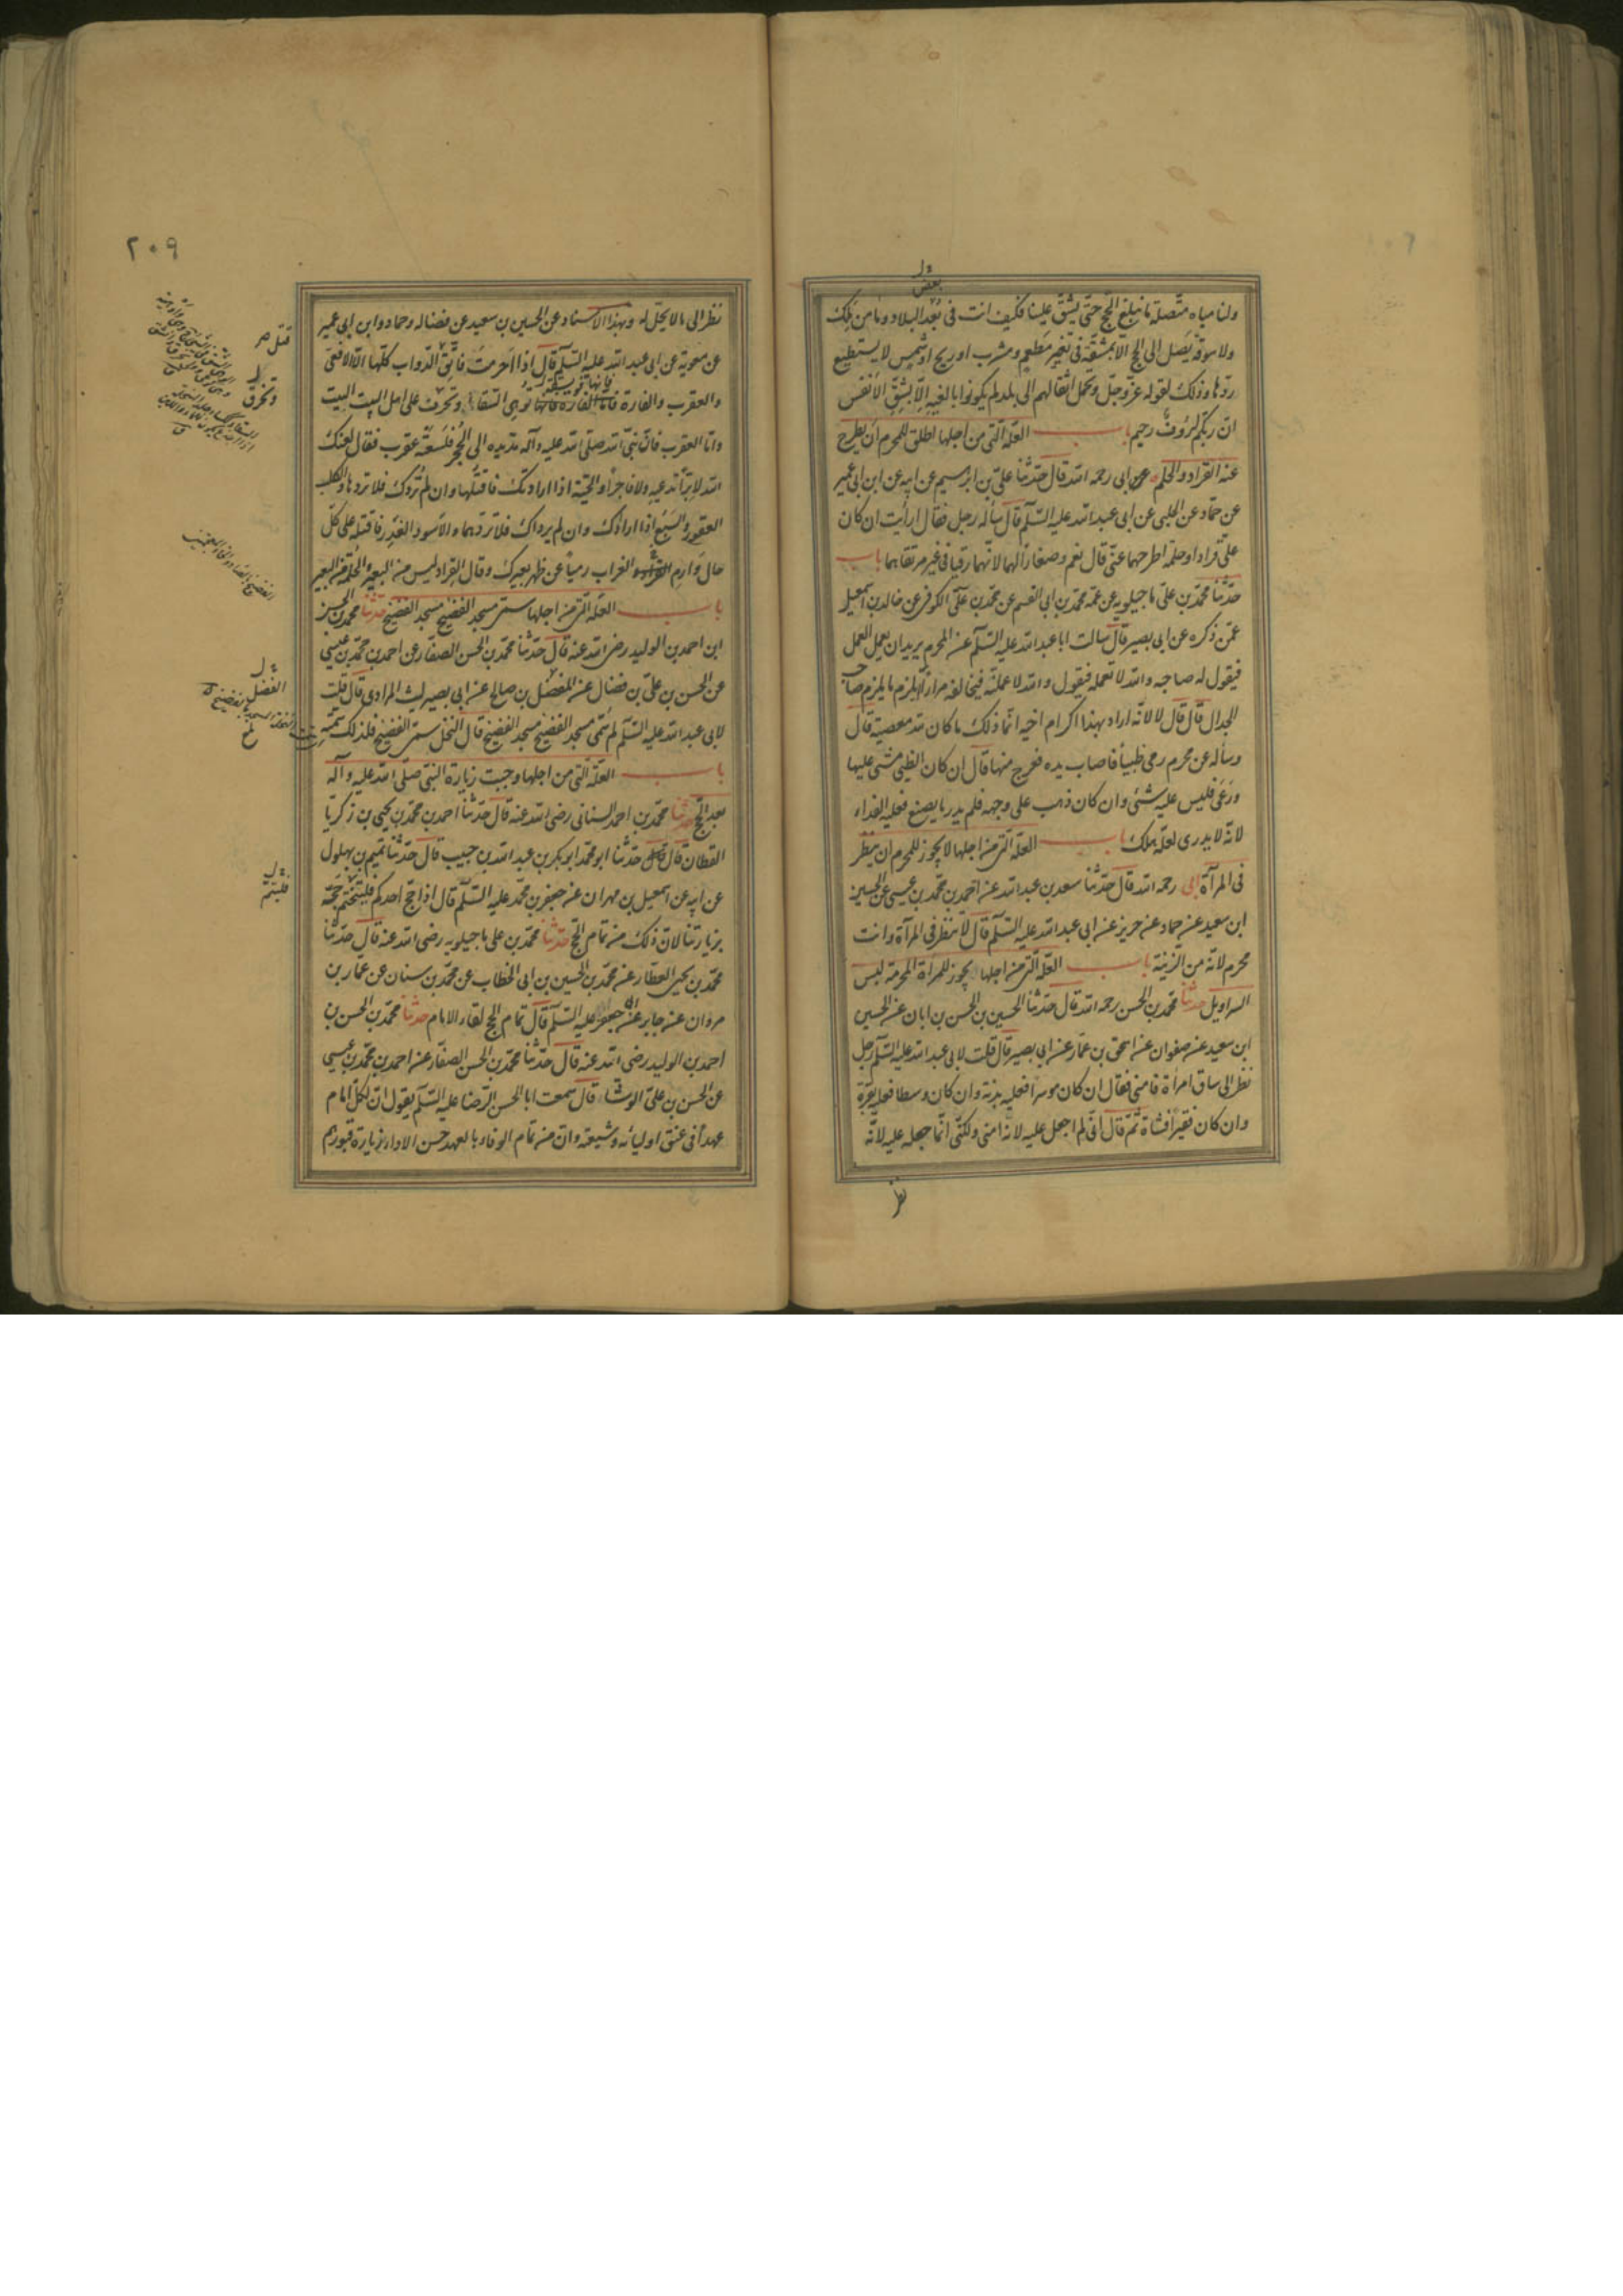 ولنا مياه متصلة ما نبلغ الحج حتى يشق علينا فكيف انت فى بعد البلاد وما من ملك
ولا سوقة يصل الى الحج الا بمشقة فى تغير مطعم ومشرب او ريح او شمس لا يستطيع
ردها وذلك لقوله عز وجل وتحمل اثقالهم الى بلد لم يكونوا بالغيه الا بشق الانفس
ان ربكم لرؤف رحيم باب العلة التى من اجلها اطلق للمحرم ان يطرح
عنه القراد والحلم ابى رحمه الله قال حدثنا على بن ابرهيم عن ابيه عن ابن ابى عمير
عن حماد عن الحلبى عن ابى عبد الله عليه السلم قال سأله رجل فقال ارأيت ان كان
على قراد او حلمة اطرحهما عنى قال نعم وصغارا لهما لانهما رقيا فى غير مرتقاهما باب
حدثنا محمد بن على ماجيلويه عن عمه محمد بن ابى القسم عن محمد بن على الكوفى عن خالد بن اسمعيل
عمن ذكره عن ابى بصير قال سالت ابا عبد الله عليه السلم عن المحرم يريدان يعمل العمل
فيقول له صاحبه والله لا تعمله فيقول والله لا عملنه فيخالفه مرارا يلزم ما يلزم صاحب
الجدال قال قال لا لانه اراد بهذا اكرام اخيه انما ذلك ما كان لله معصية قال
وسأله عن محرم رمى ظبيا فاصاب يده فعرج منها قال ان كان الظبى مشى عليها
ورعى فليس عليه شئ وان كان ذهب على وجهه فلم يدر ما يصنع فعليه الفداء
لانه لا يدرى لعله هلك باب العلة التى من اجلها لا يجوز للمحرم ان ينظر
فى المرآة ابى رحمه الله قال حدثنا سعد بن عبد الله عن احمد بن محمد بن عيسى عن الحسين
ابن سعيد عن حماد عن حريز عن ابى عبد الله عليه السلم قال لا تنظر فى المرآة وانت
محرم لانه من الزينة باب العلة التى من اجلها يجوز للمرأة المحرمة لبس
السراويل حدثنا محمد بن الحسن رحمه الله قال حدثنا الحسين بن الحسن بن ابان عن الحسين
ابن سعيد عن صفوان عن اسحق بن عمار عن ابى بصير قال قلت لابى عبد الله عليه السلم رجل
نظر الى ساق امرأة فامنى فقال ان كان موسرا فعليه بدنة وان كان وسطا فعليه بقرة
وان كان فقيرا فشاة ثم قال انى لم اجعل عليه لانه امنى ولكنى انما جعله عليه لانه
نظر
٢٠٩
نظر الى ما لا يحل له وبهذا الاسناد عن الحسين بن سعيد عن فضالة وحماد وابن ابى عمير
عن معوية عن ابى عبد الله عليه السلم قال اذا احرمت فاتق الدواب كلها الا الافعى
والعقرب والفارة فاما الفارة فانها توهى السقاء وتحرق على اهل البيت البيت
واما العقرب فان نبى الله صلى الله عليه وآله مد يده الى الحجر فلسعته عقرب فقال لعنك
الله لا برا تدعيه ولا فاجرا والحية اذا ارادتك فاقتلها وان لم تردك فلا تردها والكلب
العقور والسبع اذا ارادك وان لم يرداك فلا تردهما والاسود الغدر فاقتله على كل
حال وارم الغراب رميا عن ظهر بعيرك وقال القراد ليس من البعير والحلمة من البعير
باب العلة التى من اجلها سمى مسجد الفضيخ مسجد الفضيخ حدثنا محمد بن الحسن
ابن احمد بن الوليد رضى الله عنه قال حدثنا محمد بن الحسن الصفار عن احمد بن محمد بن عيسى
عن الحسن بن على بن فضال عن المفضل بن صالح عن ابى بصير ليث المرادى قال قلت
لابى عبد الله عليه السلم لم سمى مسجد الفضيخ مسجد الفضيخ قال النخل سمى الفضيخ فلذلك سمى
باب العلة التى من اجلها وجبت زيارة النبى صلى الله عليه وآله
بعد الحج حدثنا محمد بن احمد السنانى رضى الله عنه قال حدثنا احمد بن محمد بن يحيى بن زكريا
القطان قال حدثنا ابو محمد ابو بكر بن عبد الله بن حبيب قال حدثنا تميم بن بهلول
عن ابيه عن اسمعيل بن مهران عن جعفر بن محمد عليه السلم قال اذا حج احدكم فليختم حجه
بزيارتنا لان ذلك من تمام الحج حدثنا محمد بن على ماجيلويه رضى الله عنه قال حدثنا
محمد بن يحيى العطار عن محمد بن الحسين بن ابى الخطاب عن محمد بن سنان عن عمار بن
مروان عن جابر عن ابى جعفر عليه السلم قال تمام الحج لقاء الامام حدثنا محمد بن الحسن بن
احمد بن الوليد رضى الله عنه قال حدثنا محمد بن الحسن الصفار عن احمد بن محمد بن عيسى
عن الحسن بن على الوشاء قال سمعت ابا الحسن الرضا عليه السلم يقول ان لكل امام
عهدا فى عنق اوليائه وشيعته وان من تمام الوفاء بالعهد حسن الاداء زيارة قبورهم